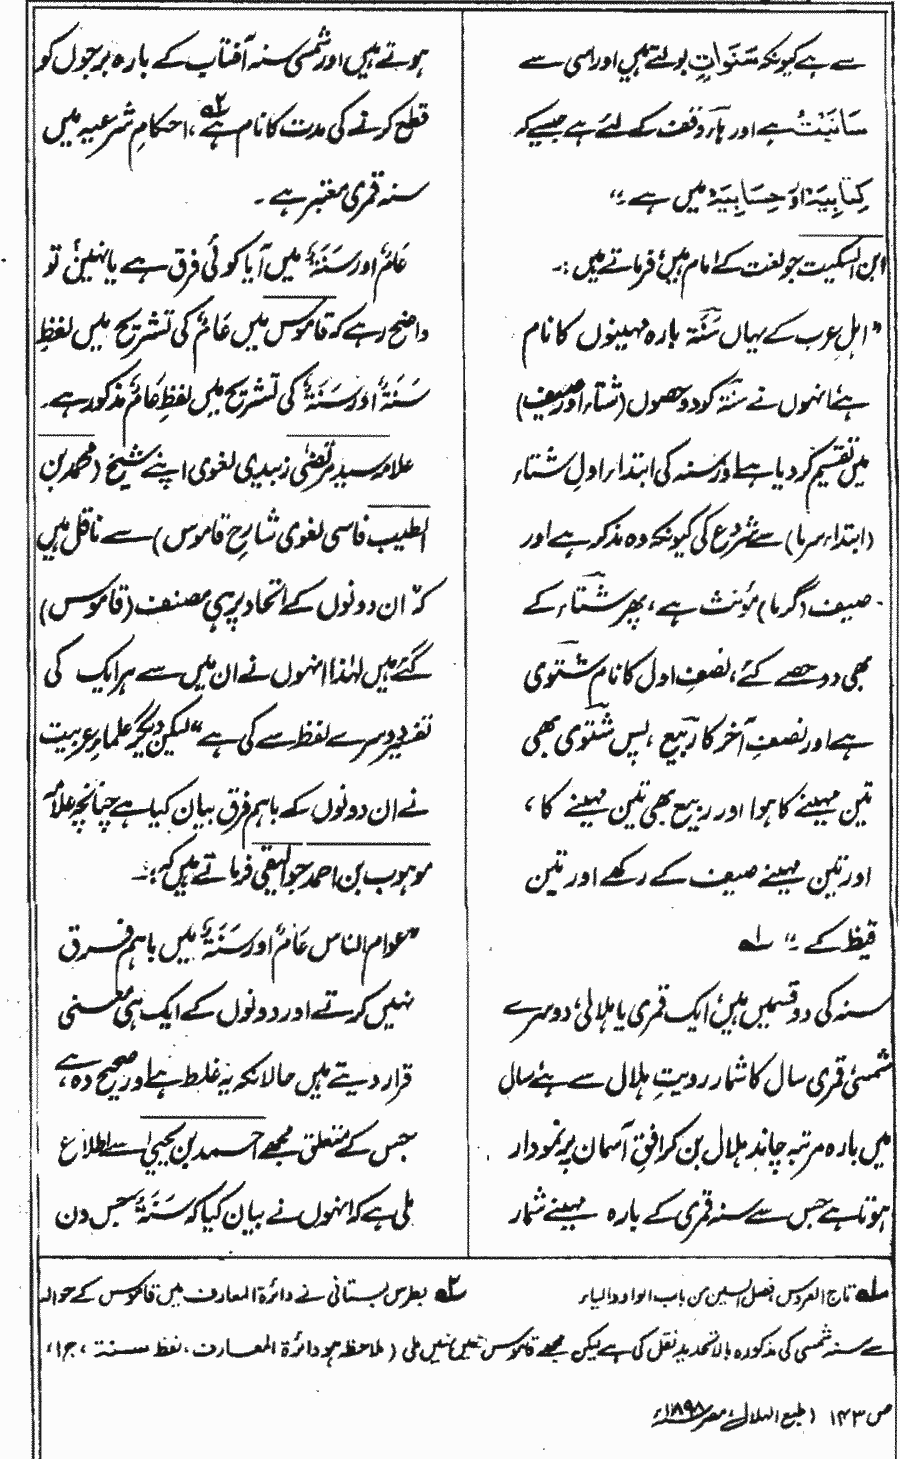 سے ہے کیونکہ سَنَوَاتٍ بولتے ہیں اور اسی سے
سَانَیْتُ ہے اور ہاء وقف کے لئے ہے جیسے کہ
کِتَابِیَہْ اور حِسَابِیَہْ میں ہے ۔"
ابن السکیت جو لغت کے امام ہیں، فرماتے ہیں :۔
"اہلِ عرب کے یہاں سَنَۃ بارہ مہینوں کا نام
ہے، انہوں نے سنۃ کو دو حصوں (شتاء اور صیف)
میں تقسیم کر دیا ہے اور سنہ کی ابتداء اولِ شتاء
(ابتداء سرما) سے شروع کی کیونکہ وہ مذکر ہے اور
صیف (گرما) مؤنث ہے، پھر شتاء کے
بھی دو حصے کئے، نصفِ اول کا نام شتوی
ہے اور نصفِ آخر کا ربیع، پس شتوی بھی
تین مہینے کا ہوا اور ربیع بھی تین مہینے کا،
اور تین مہینے صیف کے رکھے اور تین
قیظ کے ۔" ؎۱
سنہ کی دو قسمیں ہیں، ایک قمری یا ہلالی، دوسرے
شمسی، قمری سال کا شمار رویتِ ہلال سے ہے، سال
میں بارہ مرتبہ چاند ہلال بن کر افقِ آسمان پر نمودار
ہوتا ہے جس سے سنہ قمری کے بارہ مہینے شمار
ہوتے ہیں اور شمسی سنہ آفتاب کے بارہ برجوں کو
قطع کرنے کی مدت کا نام ہے ؎۲، احکامِ شرعیہ میں
سنہ قمری معتبر ہے ۔
عَامٌ اور سَنَۃٌ میں آیا کوئی فرق ہے یا نہیں، تو
واضح رہے کہ قاموس میں عَامٌ کی تشریح میں لفظِ
سَنَۃٌ اور سَنَۃٌ کی تشریح میں لفظِ عَامٌ مذکور ہے۔
علامہ سید مرتضیٰ زبیدی لغوی اپنے شیخ (محمد بن
الطیب فاسی لغوی شارحِ قاموس) سے ناقل ہیں
کہ "ان دونوں کے اتحاد پر ہی مصنف (قاموس)
گئے ہیں لہٰذا انہوں نے ان میں سے ہر ایک کی
تفسیر دوسرے لفظ سے کی ہے" لیکن دیگر علماءِ عربیت
نے ان دونوں کے باہم فرق بیان کیا ہے چنانچہ علامہ
موہوب بن احمد جوالیقی فرماتے ہیں کہ :۔
"عوام الناس عَامٌ اور سَنَۃٌ میں باہم فرق
نہیں کرتے اور دونوں کے ایک ہی معنی
قرار دیتے ہیں حالانکہ یہ غلط ہے اور صحیح وہ ہے،
جس کے متعلق مجھے احمد بن یحییٰ سے اطلاع
ملی ہے کہ انہوں نے بیان کیا کہ سَنَۃٌ جس دن
؎۱ تاج العروس فصل السین من باب الواو والیاء
؎۲ بطرس بستانی نے دائرۃ المعارف میں قاموس کے حوالہ
سے سنہ شمسی کی مذکورہ بالا تحدید نقل کی ہے لیکن مجھے قاموس میں نہیں ملی (ملاحظہ ہو دائرۃ المعارف، لفظ سنۃ، ج ۱۰،
ص ۱۴۳ (طبع الہلال، مصر ۱۸۹۸ء